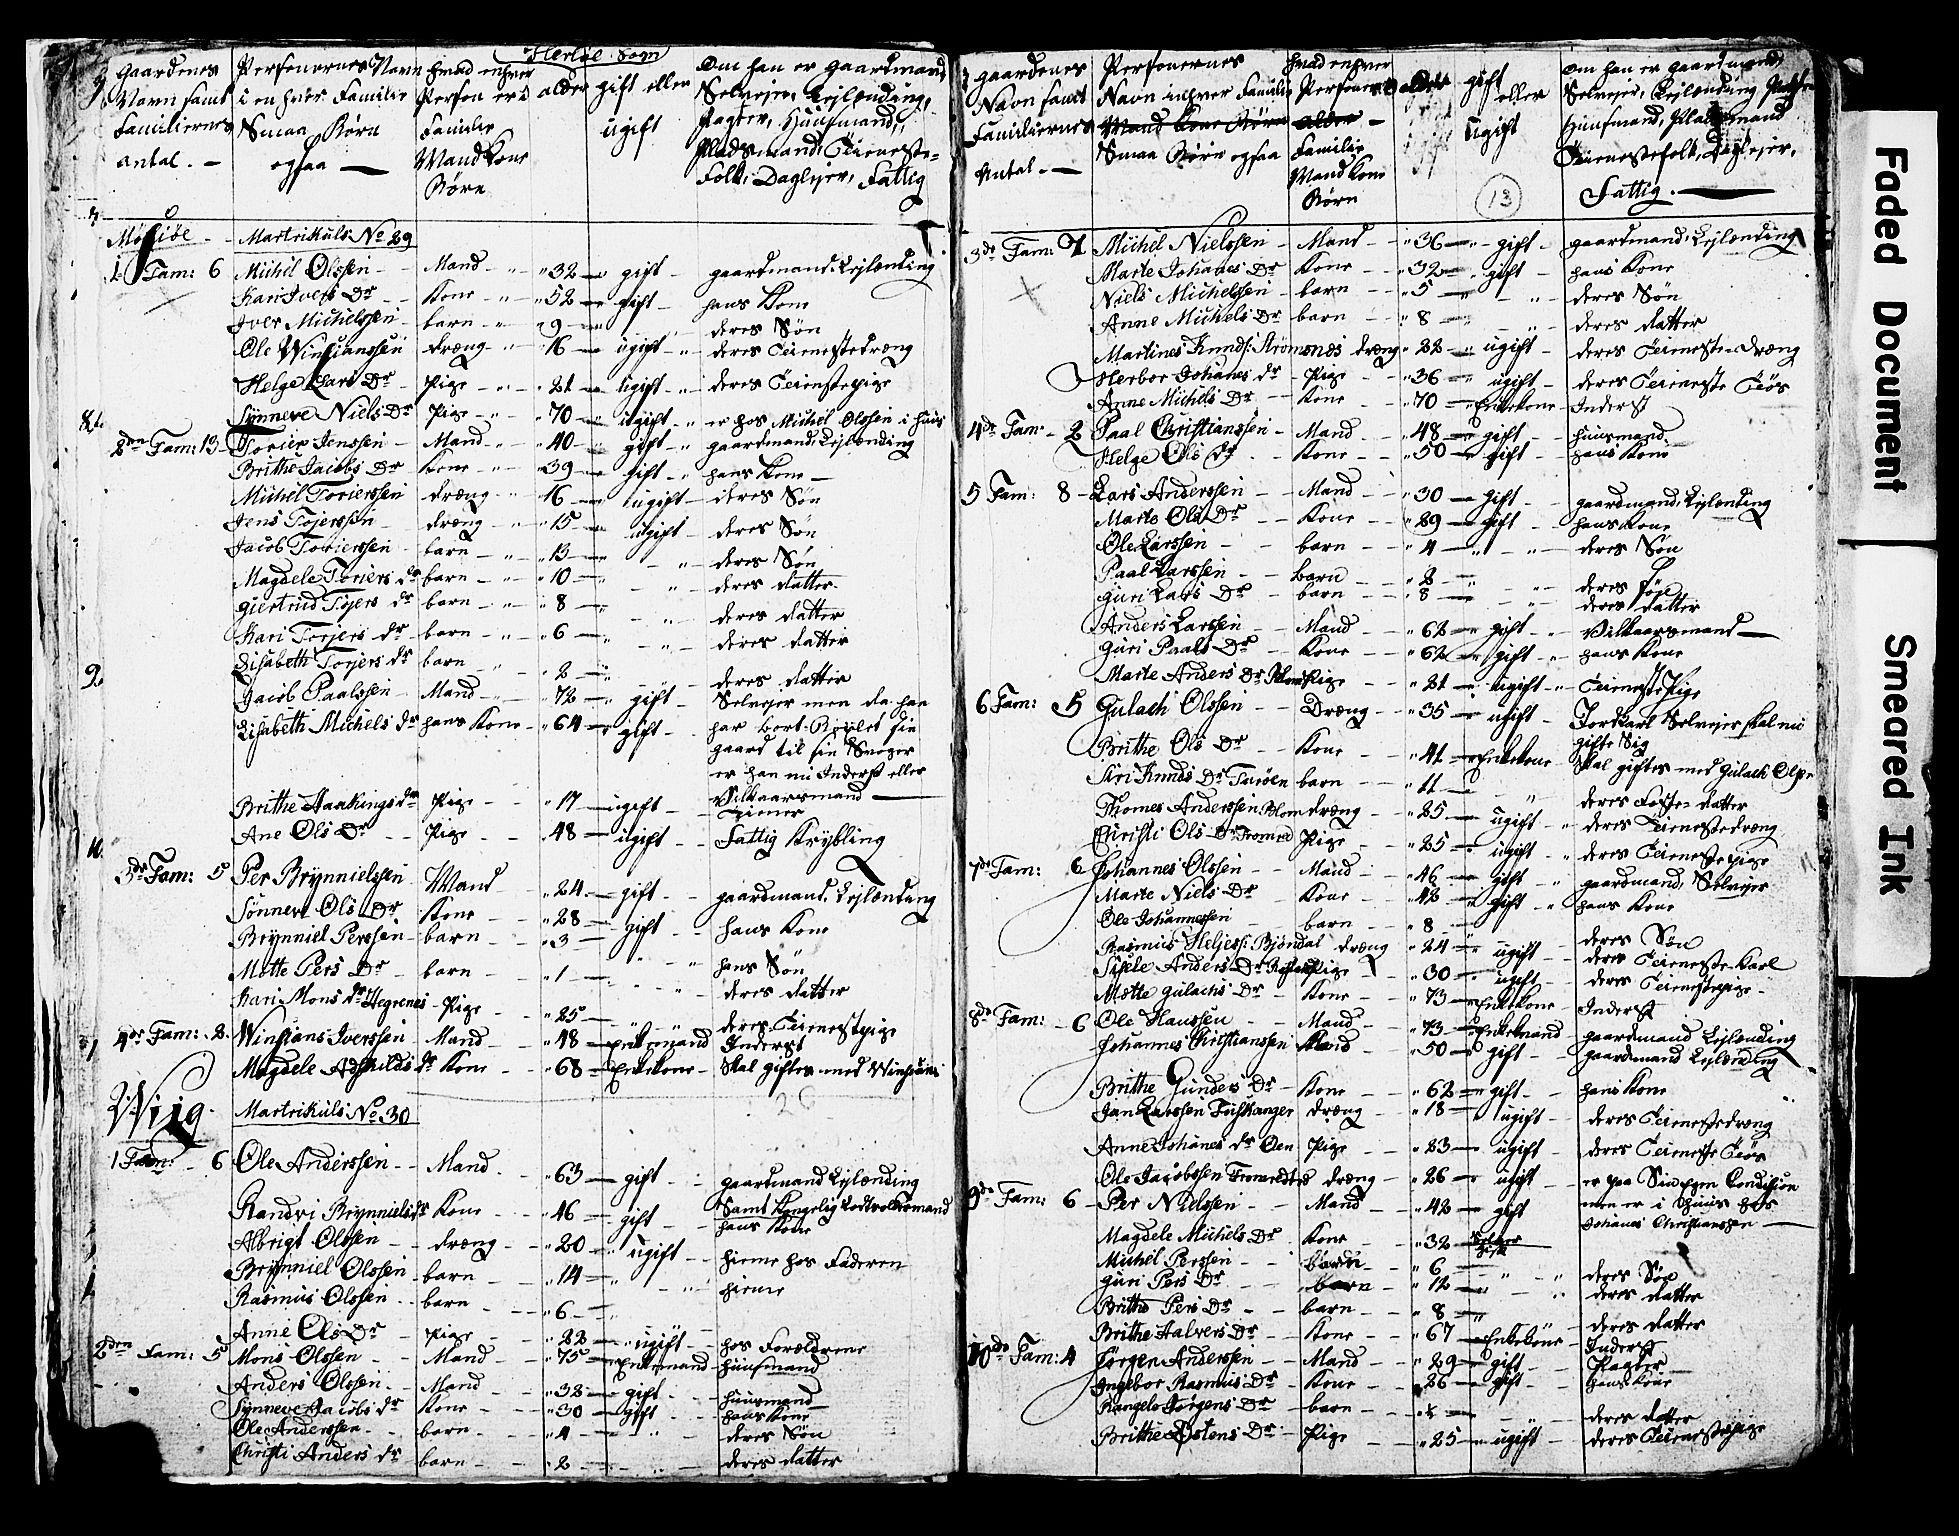 Herløe Sogn
Gaardenes Navn samt Familiernes antal. —
Personernes Navn i en hver Familie Smaa Børn ogsaa —
hvad enhver Person er i Familie Mand Kone Børn
alder
gift eller ugift
Om han er gaardmand, Selvejer, Lejlænding, Pagter, Huusmand, Pladsmand, Tieneste-Folk, Daglejer, Fattig
Martrikuls No 29
1 Fam: 6 Michel Olssen - Mand - 32 - gift - gaardmand Lejlænding
Kari Ivers Dr - Kone - 52 - gift - hans Kone
Iver Michelssen - barn - 9 - deres Søn
Ole Winsianssen dræng - 16 - ugift - deres Tienestedræng
Helge Lars Dr - Pige - 21 - ugift - deres Tienestepige
8.
Synneve Niels Dr Pige - 70 - ugift - er hos Michel Olssen i huus
2den Fam: 13 Torier Jenssen - Mand - 40 - gift - gaardmand Lejlænding
Brithe Jacobs Dr Kone - 39 - gift - hans Kone
Michel Torierssen dræng - 16 - ugift - deres Søn
Jens Tojerssen - dræng - 15 - ugift - deres Søn
Jacob Torierssen - barn - 13 - deres Søn
Magdele Toriers dr barn - 10 - deres datter
Giertrud Tojers dr barn - 8 - deres datter
Kari Torjers dr barn - 6 - deres datter
9.
Lisabeth Torjers dr barn - 2 - deres datter
Jacob Paalssen - Mand - 72 - gift - Selvejer men da han
Lisabeth Michels dr hans Kone - 64 - gift - har bort bøxlet sin
gaard til sin Svoger
er han nu Inderst eller
Vilkaarsmand
Brithe Haakings dr Pige - 17 - ugift - Tiener
Ane Ols Dr - Pige - 48 - ugift - Fattig Krybling
10.
3de Fam: 5 Per Brynnielssen Mand - 24 - gift - gaardmand. Lejlænding
Sønneve Ols Dr Kone - 28 - gift - hans Kone
Brynniel Perssen - barn - 3 - hans Søn
Mette Pers Dr - barn - 1 - deres datter
Kari Mons dr Hegrenes - Pige - 25 - deres Tienestepige
4de Fam: 2. Winsians Iverssen - Mand - 48 - Enkemand Inderst
Magdele Adskilds dr Kone - 68 - Enkekone - Skal giftes med Winsians
Wiig. Martrikuls No 30
1 Fam: 6 Ole Anderssen - Mand - 63 - gift - gaardmand Lejlænding
Samt Kongelig
Randvi Brynniels dr Kone - 46 - gift - hans Kone
Albrigt Olssen - dræng - 20 - ugift - hieme hos Faderen
Brynniel Olssen barn - 14 - hieme
Rasmus Olssen - barn - 6
Anne Ols Dr - Pige - 22 - ugift - hos Forældrene
2den Fam: 5 Mons Olssen - Mand - 75 - Enkemand - huusmand
Anders Olssen - Mand - 32 - gift - huusmand
Synneve Jacobs dr Kone - 30 - gift - hans Kone
Ole Anderssen - barn - 4 - deres Søn
Christi Anders dr barn - 2 - deres datter
Gaardenes Navn samt Familiernes Antal. —
Personernes Navn i enhver Familie Mand Kone Børn Smaa Børn ogsaa
hvad enhver Person er i alder Familie Mand Kone Børn
gift eller ugift
13
Om han er gaardmand, Selvejer, Lejlænding Pagter Huusmand, Pladsmand Tienestefolk, Daglejer, Fattig.
3de Fam: 7 Michel Nielssen - Mand - 36 - gift - gaardmand Lejlænding
Marte Johanes Dr Kone - 32 - gift - hans Kone
Niels Michelssen - barn - 5 - deres Søn
Anne Michels Dr barn - 8 - deres datter
Martines Knuds: Strømsnes dræng - 22 - ugift - deres Tieneste-dræng
Herbor Johanes dr - Pige - 36 - ugift - deres Tieneste Tøs
Anne Michels Dr - Kone - 70 - Enkekone - Inderst
4de Fam - 2 Paal Christianssen - Mand - 48 - gift - huusmand
Helge Ols dr - Kone - 50 - gift - hans Kone
5 Fam: 8 - Lars Anderssen - Mand - 30 - gift - gaardmand Lejlænding
Marte Ols Dr - Kone - 29 - gift - hans Kone
Ole Larssen - barn - 4 - deres Søn
Paal Larssen - barn - 2 - deres Søn
Guri Lars Dr - barn - 8 - deres datter
Anders Larssen - Mand - 62 - gift - Vilkaarsmand
Guri Paals Dr - Kone - 62 - gift - hans Kone
Marte Anders Dr Pige - 21 - ugift - Tienestepige
6 Fam: 5 Gulach Olssen - Dræng - 35 - ugift - Selvejer skal nu
gifte Sig
Brithe Ols Dr - Kone - 41 - Enkekone Skal giftes med Gulach Olss:
Siri Knuds Dr barn - 11 - deres Foste-datter
Thomes Anderssen Blom dræng - 25 - ugift - deres Tienestedræng
Christi Ols Dr Pige - 25 - ugift - deres Tienestepige
7de Fam: 6 Johannes Olssen - Mand - 46 - gift - gaardmand, Selvejer
Marte Niels Dr - Kone - 42 - gift - hans Kone
Ole Johannessen - barn - 8 - deres Søn
Rasmus Heljess: Bjøndal dræng - 24 - ugift - deres Tieneste-Karl
Sisele Anders Dr Pige - 30 - ugift - deres Tienestepige
Mætte Gulachs Dr - Kone - 73 - Enkekone Inderst
8de Fam: - 6 Ole Hanssen - Mand - 73 - Enkemand gaardmand Lejlænding
Johannes Christianssen Mand - 50 - gift - gaardmand Lejlænding
Brithe Gunders Dr - Kone - 62 - gift - hans Kone
Jan Larssen Fuskanger dræng - 18 - ugift - deres Tienestedræng
Anne Johanes dr Øen Pige - 23 - ugift - deres Tieneste Tøs
Ole Jacobssen dræng - 26 - ugift - er paa Sin egen Condition
men er i huus hos
Johanes Christianssen
9de Fam: 6 - Per Nielssen - Mand - 42 - gift
Magdele Michels Dr Kone - 32
Michel Perssen - barn - 6 - deres Søn
Guri Pers Dr - barn - 12 - deres datter
Brithe Pers Dr - barn - 8 - deres datter
Brithe Halvers Dr - Kone - 67 - Enkekone - Inderst
10de Fam: 4 Jørgen Anderssen - Mand - 29 - gift - Pagter
Ingebor Rasmus Dr - Kone - 26 - gift - hans Kone
Rangele Jørgens Dr - barn - deres datter
Brithe Østens Dr - Pige - 25 - ugift - deres Tienestepige
Faded Document
Smeared Ink